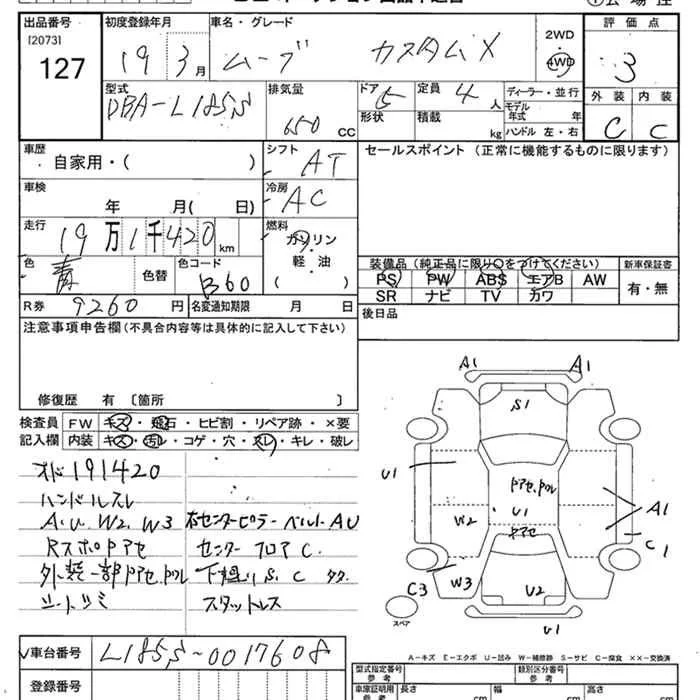 出品番号 初度登録年月 車名・グレード 2WD 評価点
[2073] 127 19 3月 ムーブ カスタムX 4WD 3
型式 DBA-L185S 排気量 650 CC ドア 5 定員 4 人 ディーラー・並行 外装 内装
形状 積載 kg モデル年式 年 ハンドル 左・右 C C
車歴 自家用・( ) シフト AT セールスポイント (正常に機能するものに限ります)
車検 年 月( 日) 冷房 AC
走行 19万1千420km 燃料 ガソリン 軽・油 ( )
色 青 色替 色コード B60 装備品(純正品に限り○をつけてください) 新車保証書
PS PW ABS エアB AW 有・無
SR ナビ TV カワ
R券 9260円 名変通知期限 月 日 後日品
注意事項申告欄(不具合内容等は具体的に記入して下さい)
修復歴 有 〔箇所 〕
検査員 FW キズ・飛石・ヒビ割・リペア跡・×要
記入欄 内装 キズ・汚レ・コゲ・穴・スレ・キレ・破レ
オド191420
ハンドルスレ
A.U.W2.W3 右センターピラーベルトAU
RスポPアセ センターフロアC.
外装一部Pアセ. 下廻りS.C
シートシミ スタットレス
A1 A1
S1
U1 U1 A1
W2 Pアセ C1
C3 W3 U2
スペア U1
A-キズ E-エクボ U-凹み W-補修跡 S-サビ C-腐食 ××-交換済
車台番号 L185S-0017608 型式指定番号 参考 類別区分番号 参考
登録番号 車庫証明用 参考 長さ cm 幅 cm 高さ cm